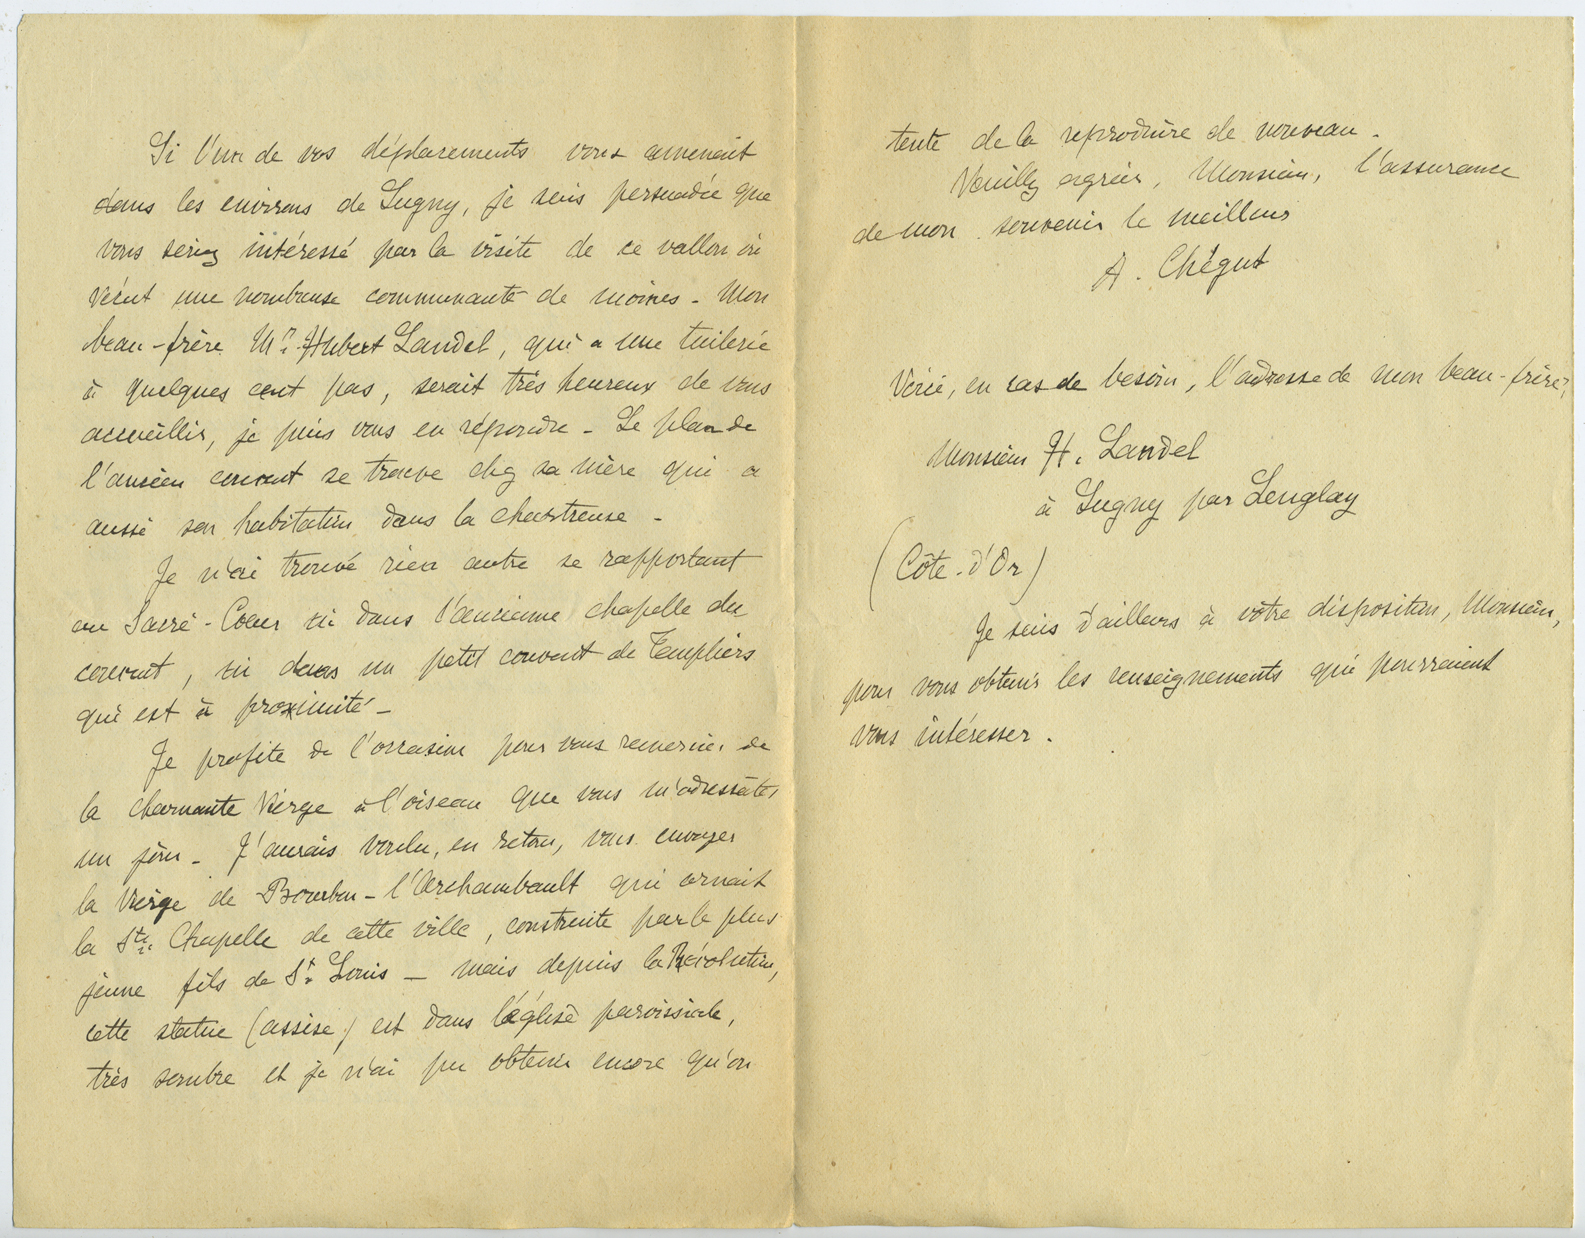 Si l'un de vos déplacements vous amenait
dans les environs de Lugny, je suis persuadée que
vous seriez intéressé par la visite de ce vallon où
vécut une nombreuse communauté de moines - Mon
beau-frère Mr. Hubert Landel, qui a une tuilerie
à quelques cent pas, serait très heureux de vous
accueillir, je puis vous en répondre - Le plan de
l'ancien couvent se trouve chez sa mère qui a
aussi son habitation dans la chartreuse -
Je n'ai trouvé rien autre se rapportant
au Sacré-Coeur ni dans l'ancienne chapelle du
couvent, ni dans un petit couvent de Templiers
qui est à proximité -
Je profite de l'occasion pour vous remercier de
la charmante Vierge à l'oiseau que vous m'adressâtes
un jour - J'aurais voulu, en retour, vous envoyer
la Vierge de Bourbon-l'Archambault qui ornait
la Ste. Chapelle de cette ville, construite par le plus
jeune fils de St. Louis - mais depuis la Révolution,
cette statue (assise) est dans l'église paroissiale,
très sombre et je n'ai pu obtenir encore qu'on
tente de la reproduire de nouveau.
Veuillez agréer, Monsieur, l'assurance
de mon souvenir le meilleur
A. Chégut
Voici, en cas de besoin, l'adresse de mon beau-frère,
Monsieur H. Landel
à Lugny par Leuglay
(Côte-d'Or)
Je suis d'ailleurs à votre disposition, Monsieur,
pour vous obtenir les renseignements qui pourraient
vous intéresser.